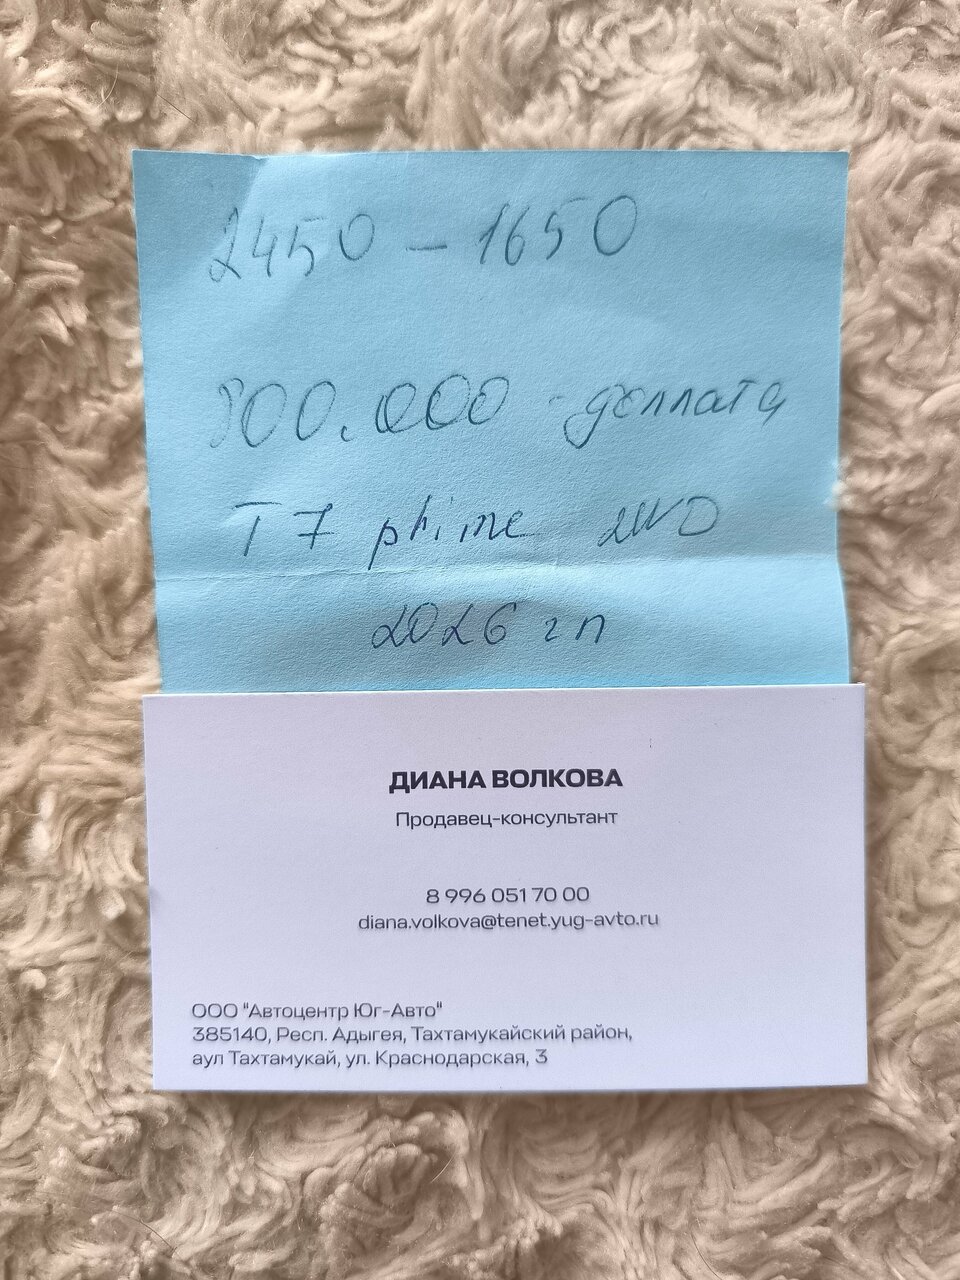 2450 - 1650
800.000 - доплата
T7 phime 2WD
2026 гп
ДИАНА ВОЛКОВА
Продавец-консультант
8 996 051 70 00
diana.volkova@tenet.yug-avto.ru
ООО "Автоцентр Юг-Авто"
385140, Респ. Адыгея, Тахтамукайский район,
аул Тахтамукай, ул. Краснодарская, 3